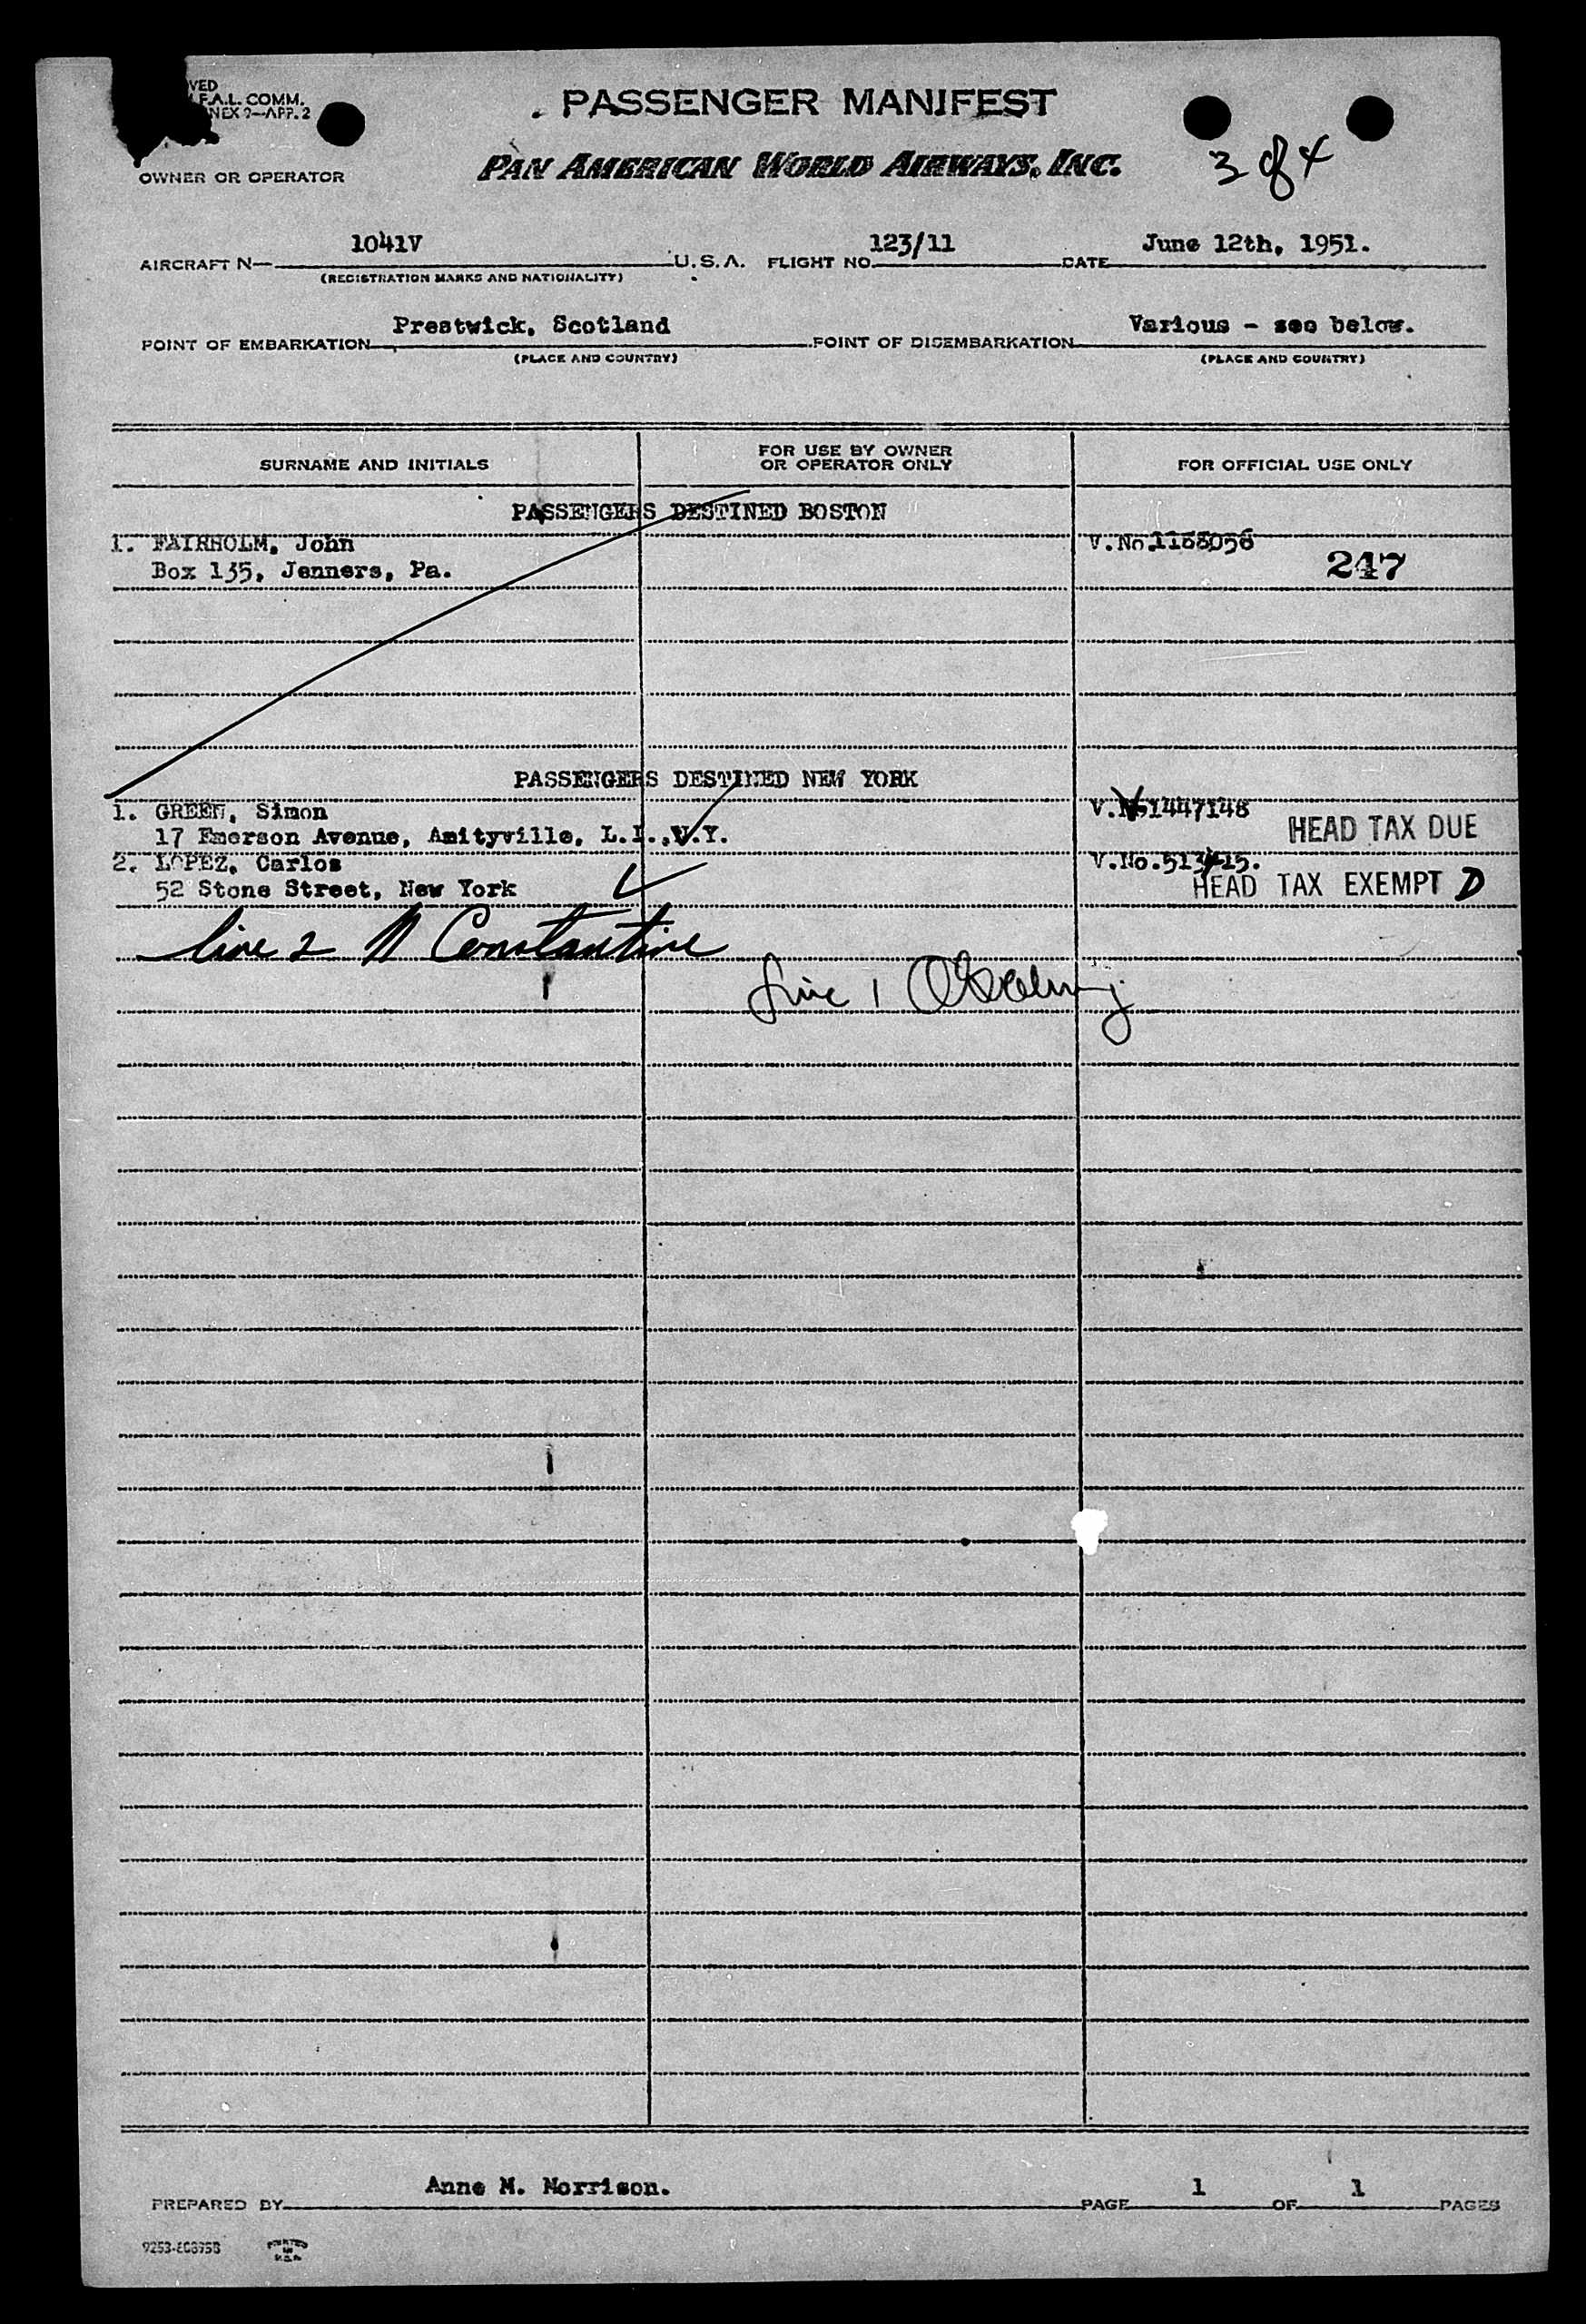 VED
F.A.L. COMM.
NEX 9—APP. 2
PASSENGER MANIFEST
OWNER OR OPERATOR
PAN AMERICAN WORLD AIRWAYS, INC.
3 of 4
AIRCRAFT N— 1041V U.S.A. FLIGHT NO. 123/11 DATE June 12th, 1951.
(REGISTRATION MARKS AND NATIONALITY)
POINT OF EMBARKATION Prestwick, Scotland POINT OF DISEMBARKATION Various - see below.
(PLACE AND COUNTRY) (PLACE AND COUNTRY)
SURNAME AND INITIALS FOR USE BY OWNER OR OPERATOR ONLY FOR OFFICIAL USE ONLY
PASSENGERS DESTINED BOSTON
1. FAIRHOLM, John V.No.1168056
Box 135, Jenners, Pa. 247
PASSENGERS DESTINED NEW YORK
1. GREEN, Simon V.No.1447148
17 Emerson Avenue, Amityville, L.I.,N.Y. HEAD TAX DUE
2. LOPEZ, Carlos V.No.
52 Stone Street, New York HEAD TAX EXEMPT D
line 2 N Constantine
Line 1
PREPARED BY Anne M. Morrison. PAGE 1 OF 1 PAGES
PRINTED IN U.S.A.